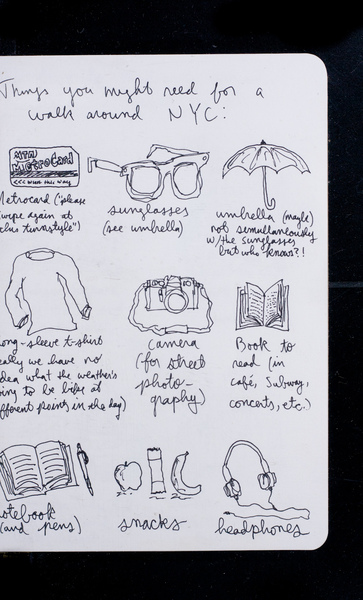 Things you might need for a
walk around NYC:
MTA
MetroCard
<<< insert this way
Metrocard ("please
swipe again at
this turnstyle")
sunglasses
(see umbrella)
umbrella (maybe)
not simultaneously
w/the sunglasses
but who knows?!
long-sleeve t-shirt
really we have no
idea what the weather's
going to be like at
different points in the day)
camera
(for street
photo-
graphy)
Book to
read (in
café, subway,
concerts, etc.)
notebook
(and pens)
snacks
headphones